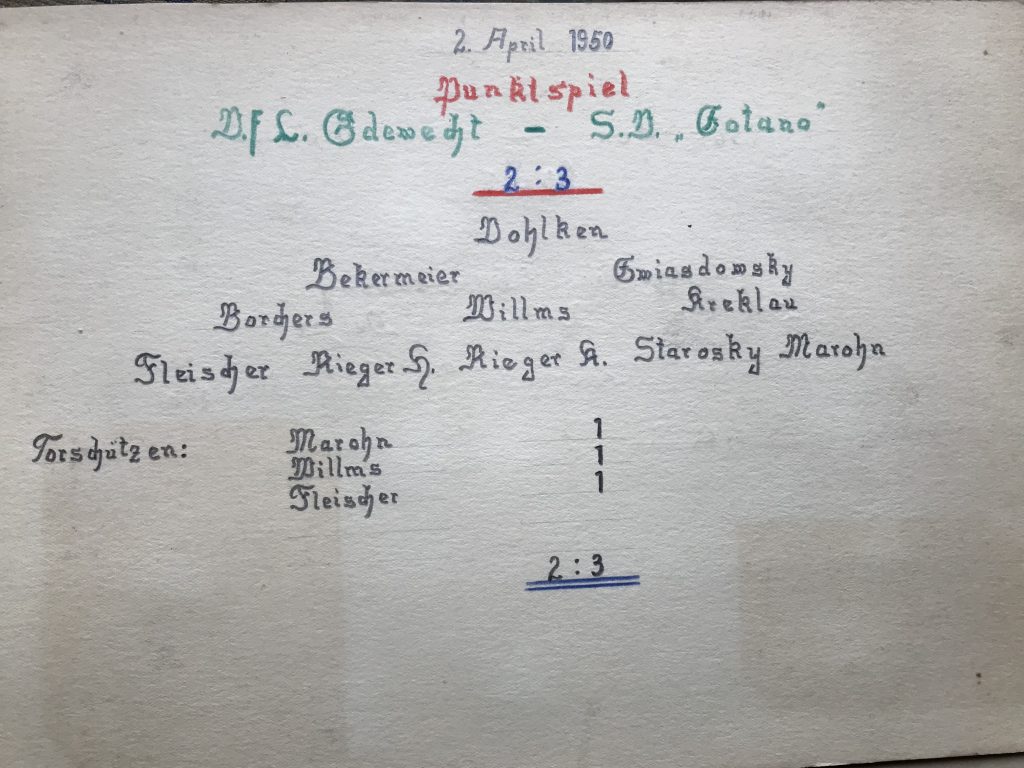 2. April 1950
Punktspiel
V.f.L. Edewecht - S.V. „Gotano"
2 : 3
Dohlken
Bekermeier Gwiasdowsky
Borchers Willms Kreklau
Fleischer Rieger H. Rieger K. Starosky Marohn
Torschützen: Marohn 1
Willms 1
Fleischer 1
2 : 3